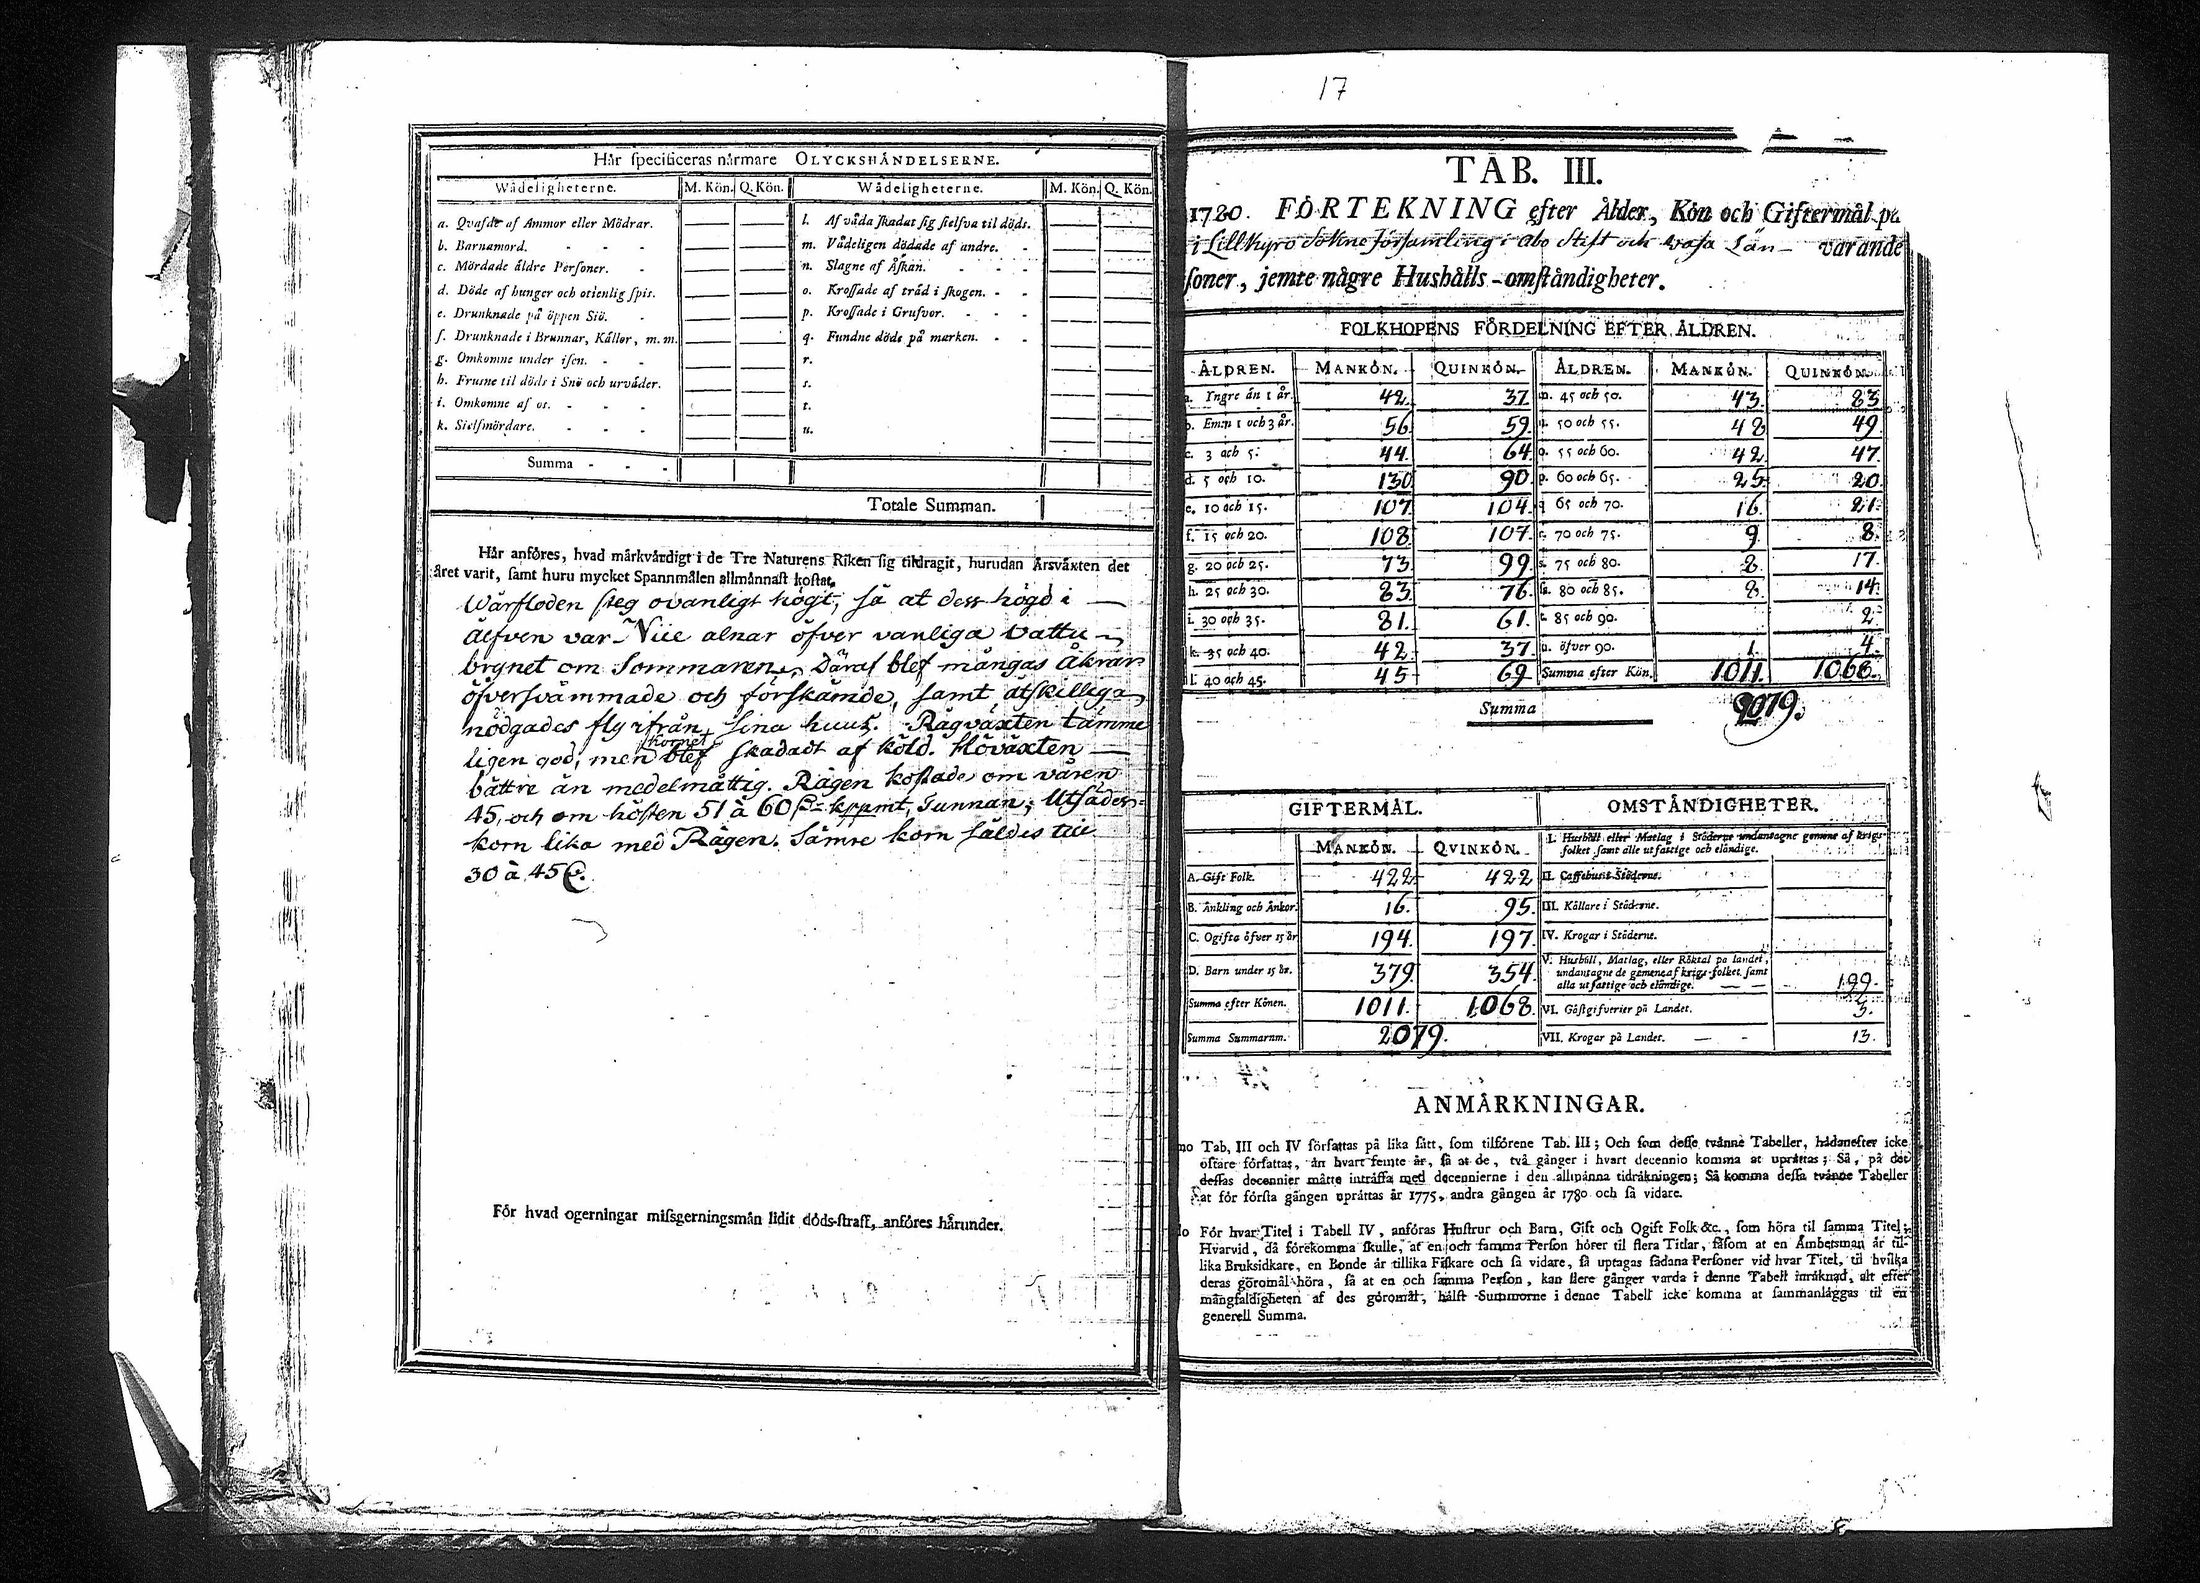 Hår specificeras nårmare OLYCKSHÅNDELSERNE.
Wådeligheterne. M. Kön. Q. Kön. Wådeligheterne. M. Kön. Q. Kön.
a. Qvafde af Ammor eller Mödrar. l. Af våda skadat sig sielfva til döds.
b. Barnamord. - - - m. Vådeligen dödade af andre. -
c. Mördade åldre Personer. - n. Slagne af Åskan. - - -
d. Döde af hunger och otienlig spis. o. Krossade af tråd i skogen. - -
e. Drunknade på öppen Siö. - p. Krossade i Grufvor. - - -
f. Drunknade i Brunnar, Kållor, m. m. q. Fundne döde på marken. - -
g. Omkomne under isen. - - r.
h. Frusne til döds i Snö och urvåder. s.
i. Omkomne af os. - - - t.
k. Sielfmördare. - - - u.
Summa - - -
Totale Summan.
Hår anföres, hvad mårkvårdigt i de Tre Naturens Riken sig tildragit, hurudan Årsvåxten det
året varit, samt huru mycket Spannmålen allmånnast kostat.
Wårfloden steg ovanligt högt, så at dess högd i
älfven var Siu alnar öfver vanliga vattu-
brynet om Sommaren. Däraf blef mångas Åkrar
öfversvämmade och förskämde, samt åtskillige
nödgades fly ifrån sina huus. Rågväxten tämme
ligen god, men kornet blef skadadt af köld. Höväxten
bättre än medelmåttig. Rågen kostade om våren
45, och om hösten 51 à 60 Tunnan; Utsädes-
korn lika med Rågen. Sämre korn såldes till
30 à 45
För hvad ogerningar missgerningsmån lidit döds-straff, anföres hårunder.
17
TAB. III.
1780. FÖRTEKNING efter Ålder, Kön och Giftermål på
i Lillkyro Sokne församling i Åbo Stift och Wasa Län varande
soner, jemte någre Hushålls-omståndigheter.
FOLKHOPENS FÖRDELNING EFTER ÅLDREN.
ÅLDREN. MANKÖN. QUINKÖN. ÅLDREN. MANKÖN. QUINKÖN.
a. Yngre ån 1 år. 42. 37 m. 45 och 50. 43. 83
b. Emn 1 och 3 år. 56. 59. n. 50 och 55. 48 49.
c. 3 och 5. 44. 64 o. 55 och 60. 42. 47.
d. 5 och 10. 130 90 p. 60 och 65. 25 20.
e. 10 och 15. 107 104. q. 65 och 70. 16. 21.
f. 15 och 20. 108 107. r. 70 och 75. 9. 8.
g. 20 och 25. 73. 99. s. 75 och 80. 8. 17.
h. 25 och 30. 83. 76. ss. 80 och 85. 8. 14.
i. 30 och 35. 81. 61. t. 85 och 90. 2.
k. 35 och 40. 42. 37. u. öfver 90. 1. 4.
l. 40 och 45. 45 69 Summa efter Kön. 1011. 1068.
Summa 2079.
GIFTERMÅL. OMSTÅNDIGHETER.
MANKÖN. QVINKÖN. I. Hushåll eller Matlag i Ståderne undantagne gemene af krigs-
folket samt alle utfattige och elåndige.
A. Gift Folk. 422 422 II. Caffehus i Ståderne.
B. Ånkling och Ånkor. 16. 95. III. Kållare i Ståderne.
C. Ogifta öfver 15 år 194. 197. IV. Krogar i Ståderne.
D. Barn under 15 år. 379. 354. V. Hushåll, Matlag, eller Röktal på landet,
undantagne de gemene af krigs-folket samt
alla utfattige och elåndige. 199.
Summa efter Könen. 1011. 1068. VI. Gåstgifverier på Landet. 3.
Summa Summarum. 2079. VII. Krogar på Landet. 13.
ANMÅRKNINGAR.
mo Tab, III och IV författas på lika sått, som tilförene Tab. III; Och som desse tvånne Tabeller, hådanefter icke
oftare författas, ån hvart femte år, så at de, två gånger i hvart decennio komma at upråttas; Så, på det
dessas decennier måtte intråffa med decennierne i den allmånna tidråkningen; Så komma dessa tvånne Tabeller
at för första gången upråttas år 1775, andra gången år 1780 och så vidare.
do För hvar Titel i Tabell IV, anföras Hustrur och Barn, Gift och Ogift Folk &c., som höra til samma Titel;
Hvarvid, då förekomma skulle, at en och samma Person hörer til flera Titlar, såsom at en Åmbetsman år til-
lika Bruksidkare, en Bonde år tillika Fiskare och så vidare, så uptagas sådana Personer vid hvar Titel, til hvilka
deras göromål höra, så at en och samma Person, kan flere gånger varda i denne Tabell inråknad, alt efter
mångfaldigheten af des göromål, hålst Summorne i denne Tabell icke komma at sammanlåggas til en
generell Summa.